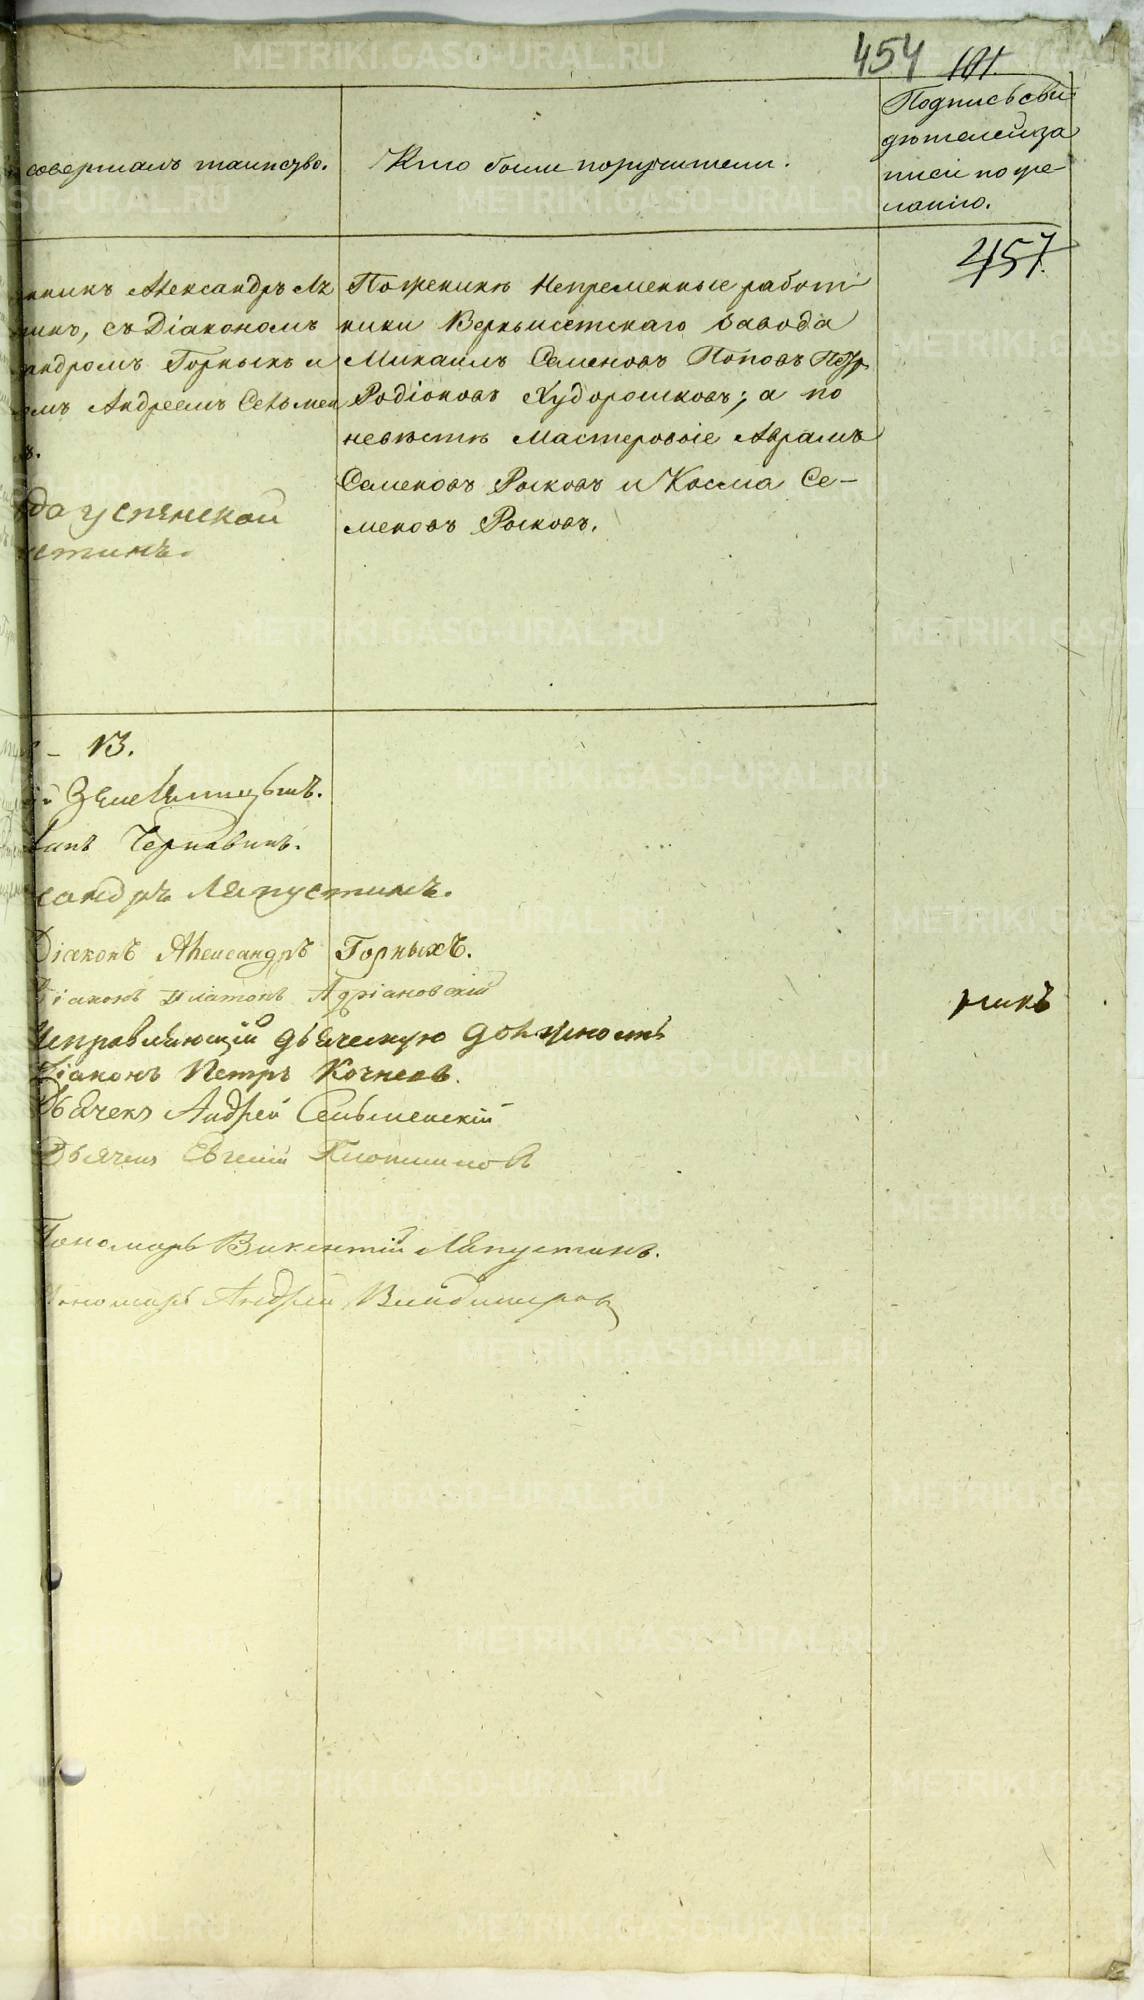 454 101.
совершалъ таинство.
Кто были поручители.
Подпись сви
дѣтелей за
писи по же
ланію.
457.
нникъ Александръ Ля
тинъ, съ Діакономъ
андромъ Горныхъ и
омъ Андреемъ Сельмен
По женихѣ Непременные работ
ники Верхъисетскаго Завода
Михаилъ Семеновъ Поповъ Петр
Родіоновъ Худорошковъ; а по
невѣстѣ Мастеровые Аврамъ
Семеновъ Рысковъ и Косма Се-
меновъ Рысковъ.
да успенской
устинъ.
- 13.
Земляницынъ.
Чернавинъ.
сандръ Ляпустинъ.
Діаконъ Александръ Горныхъ.
Діаконъ Платонъ Адріановскій
Исправляющій дьяческую должность
Діаконъ Петръ Кочневъ.
Дьячекъ Андрей Сельменскій
Дьячекъ Евгеній Плотниковъ
Пономарь Викентій Ляпустинъ.
Пономарь Андрей
никъ
METRIKI.GASO-URAL.RU